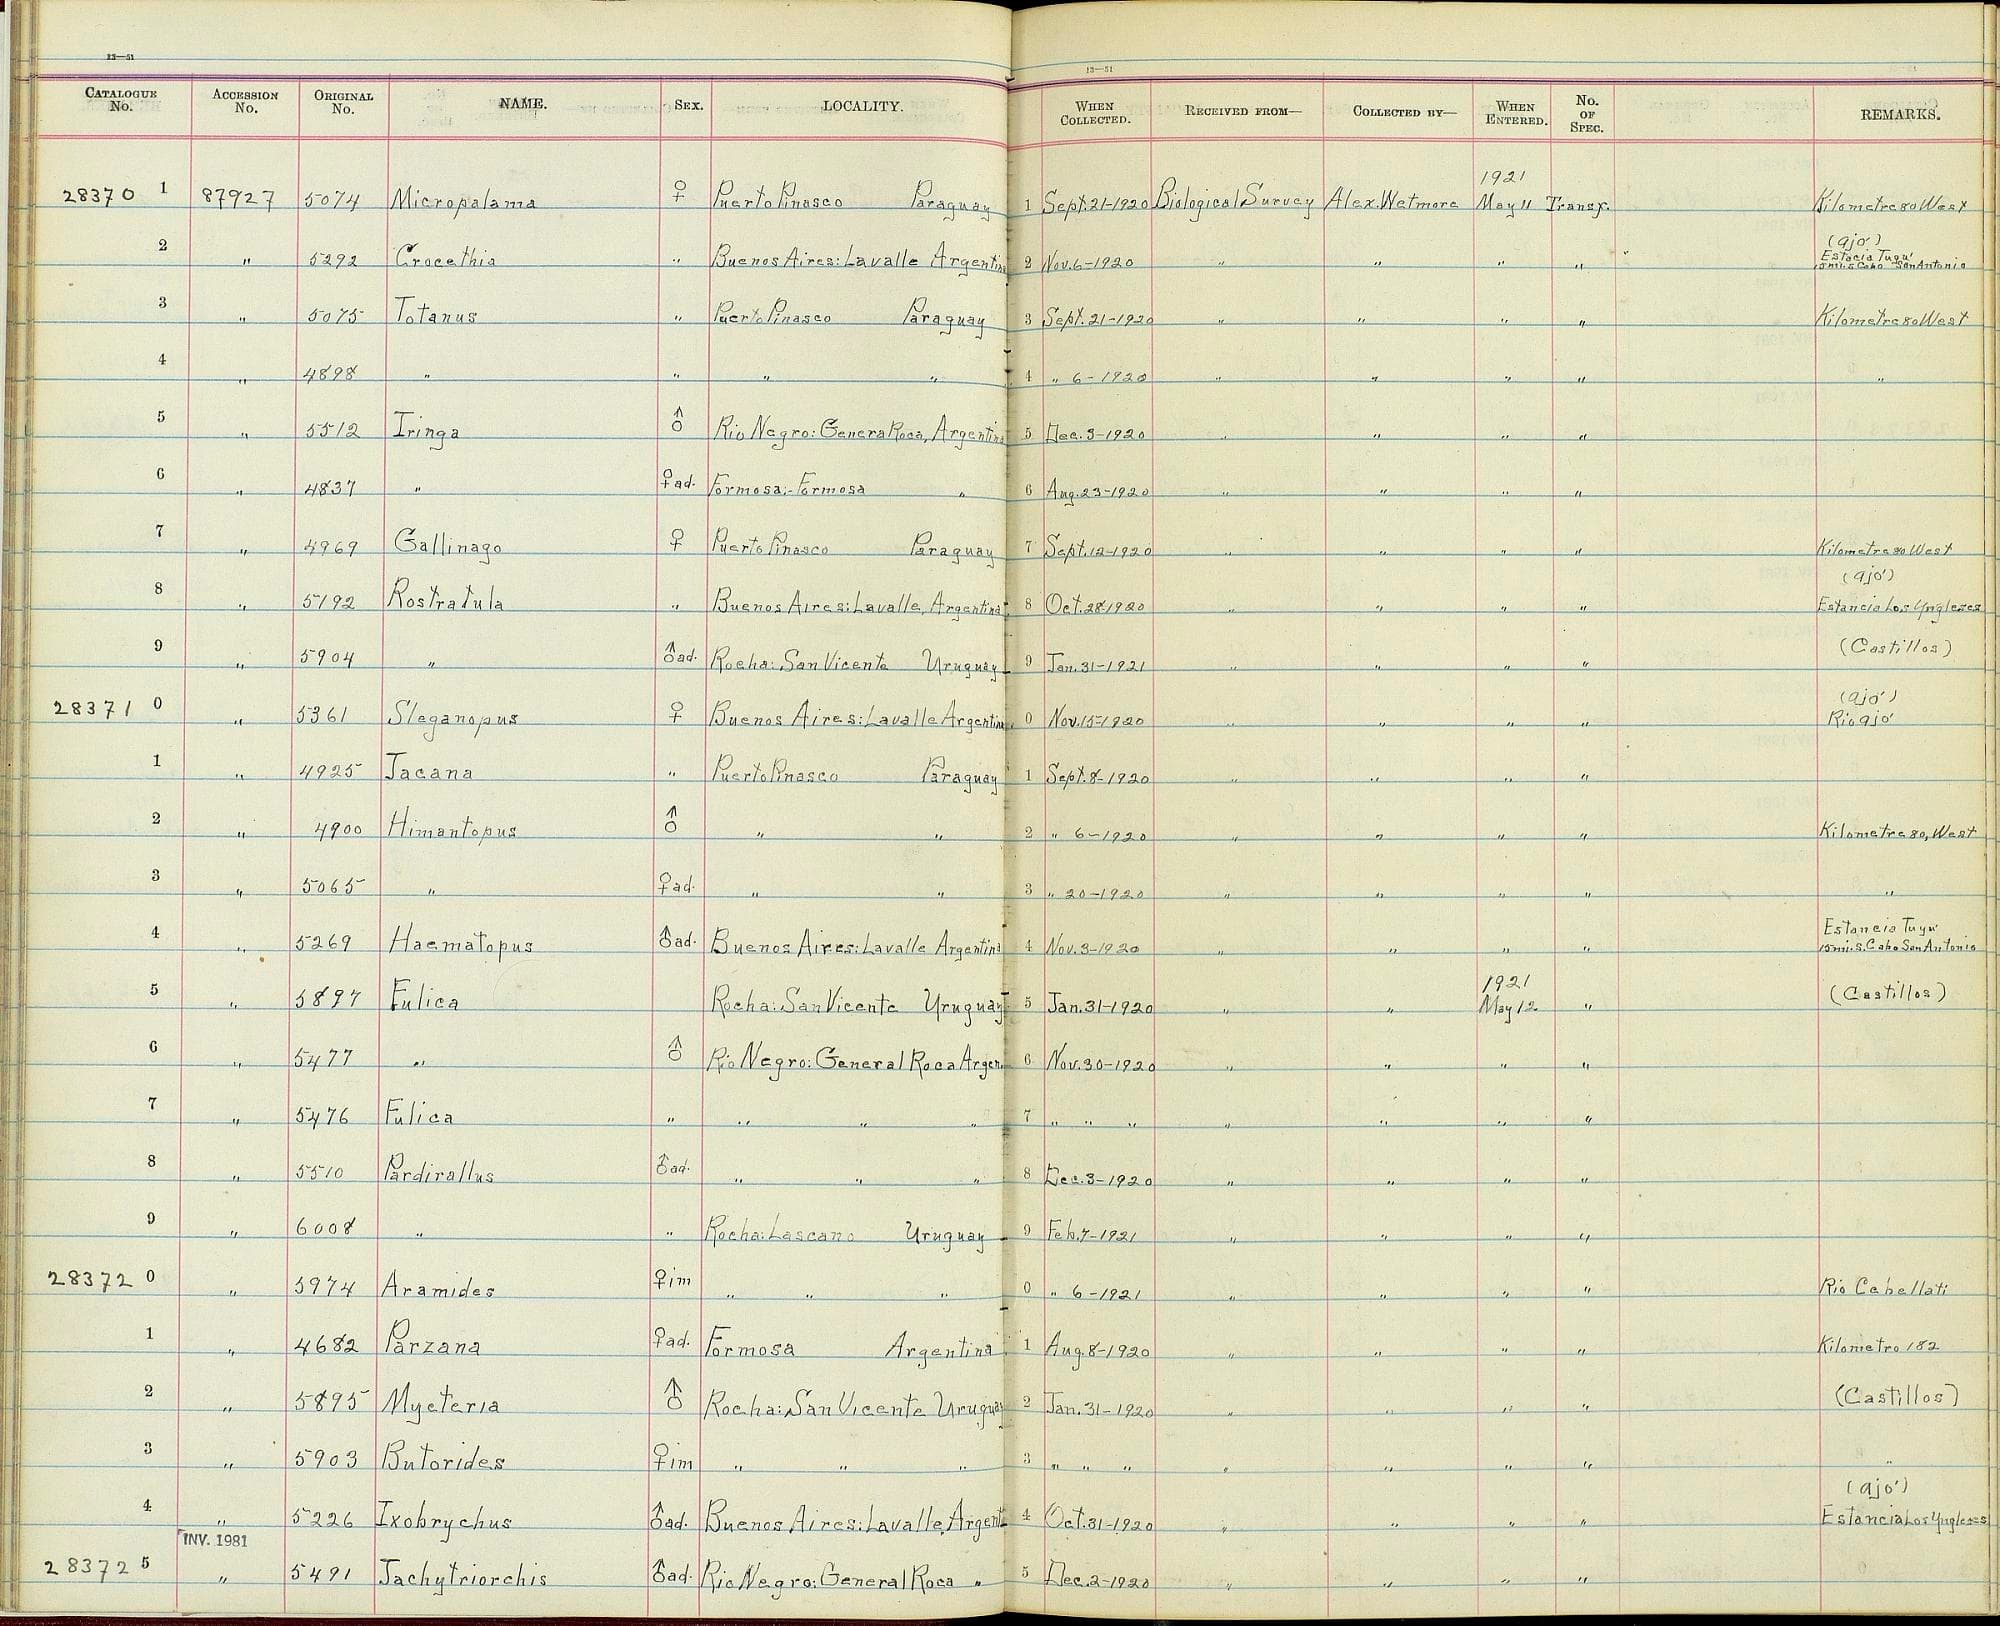 13—51
13—51
CATALOGUE No. ACCESSION No. ORIGINAL No. NAME. SEX. LOCALITY. WHEN COLLECTED. RECEIVED FROM— COLLECTED BY— WHEN ENTERED. No. OF SPEC. REMARKS.
1921
28370 1 87927 5074 Micropalama ♀ Puerto Pinasco Paraguay 1 Sept. 21-1920 Biological Survey Alex. Wetmore May 11 Transf. Kilometre 80 West
(ajo')
2 " 5292 Crocethia " Buenos Aires: Lavalle Argentina 2 Nov. 6-1920 " " " " Estacia Tuyu' 15 mi. s. Cabo San Antonio
3 " 5075 Totanus " Puerto Pinasco Paraguay 3 Sept. 21-1920 " " " " Kilometre 80 West
4 " 4898 " " " " 4 " 6-1920 " " " " "
5 " 5512 Tringa ♂ Rio Negro: Genera Roca, Argentina 5 Dec. 3-1920 " " " "
6 " 4837 " ♀ad. Formosa:-Formosa " 6 Aug. 23-1920 " " " "
7 " 4969 Gallinago ♀ Puerto Pinasco Paraguay 7 Sept. 12-1920 " " " " Kilometre 80 West
(ajo')
8 " 5192 Rostratula " Buenos Aires: Lavalle, Argentina 8 Oct. 28-1920 " " " " Estancia Los Yngleses
9 " 5904 " ♂ad. Rocha: San Vicente Uruguay 9 Jan. 31-1921 " " " " (Castillos)
(ajo')
28371 0 " 5361 Steganopus ♀ Buenos Aires: Lavalle Argentina 0 Nov. 15-1920 " " " " Rio ajo'
1 " 4925 Jacana " Puerto Pinasco Paraguay 1 Sept. 8-1920 " " " "
2 " 4900 Himantopus ♂ " " 2 " 6-1920 " " " " Kilometre 80, West
3 " 5065 " ♀ad. " " 3 " 20-1920 " " " " "
4 " 5269 Haematopus ♂ad. Buenos Aires: Lavalle Argentina 4 Nov. 3-1920 " " " " Estancia Tuyu' 15 mi. S. Cabo San Antonio
1921
5 " 5897 Fulica Rocha: San Vicente Uruguay 5 Jan. 31-1920 " " May 12 " (Castillos)
6 " 5477 " ♂ Rio Negro: General Roca Argen. 6 Nov. 30-1920 " " " "
7 " 5476 Fulica " " " " 7 " " " " " " "
8 " 5510 Pardirallus ♂ad. " " " 8 Dec. 3-1920 " " " "
9 " 6008 " " Rocha: Lascano Uruguay 9 Feb. 7-1921 " " " "
28372 0 " 5974 Aramides ♀im " " " 0 " 6-1921 " " " " Rio Cebellati
1 " 4682 Parzana ♀ad. Formosa Argentina 1 Aug. 8-1920 " " " " Kilometro 182
2 " 5895 Mycteria ♂ Rocha: San Vicente Uruguay 2 Jan. 31-1920 " " " " (Castillos)
3 " 5903 Butorides ♀im " " " 3 " " " " " " " "
(ajo')
4 " 5226 Ixobrychus ♂ad. Buenos Aires: Lavalle, Argent 4 Oct. 31-1920 " " " " Estancia Los Yngleses
INV. 1981
28372 5 " 5491 Tachytriorchis ♂ad. Rio Negro: General Roca " 5 Dec. 2-1920 " " " "